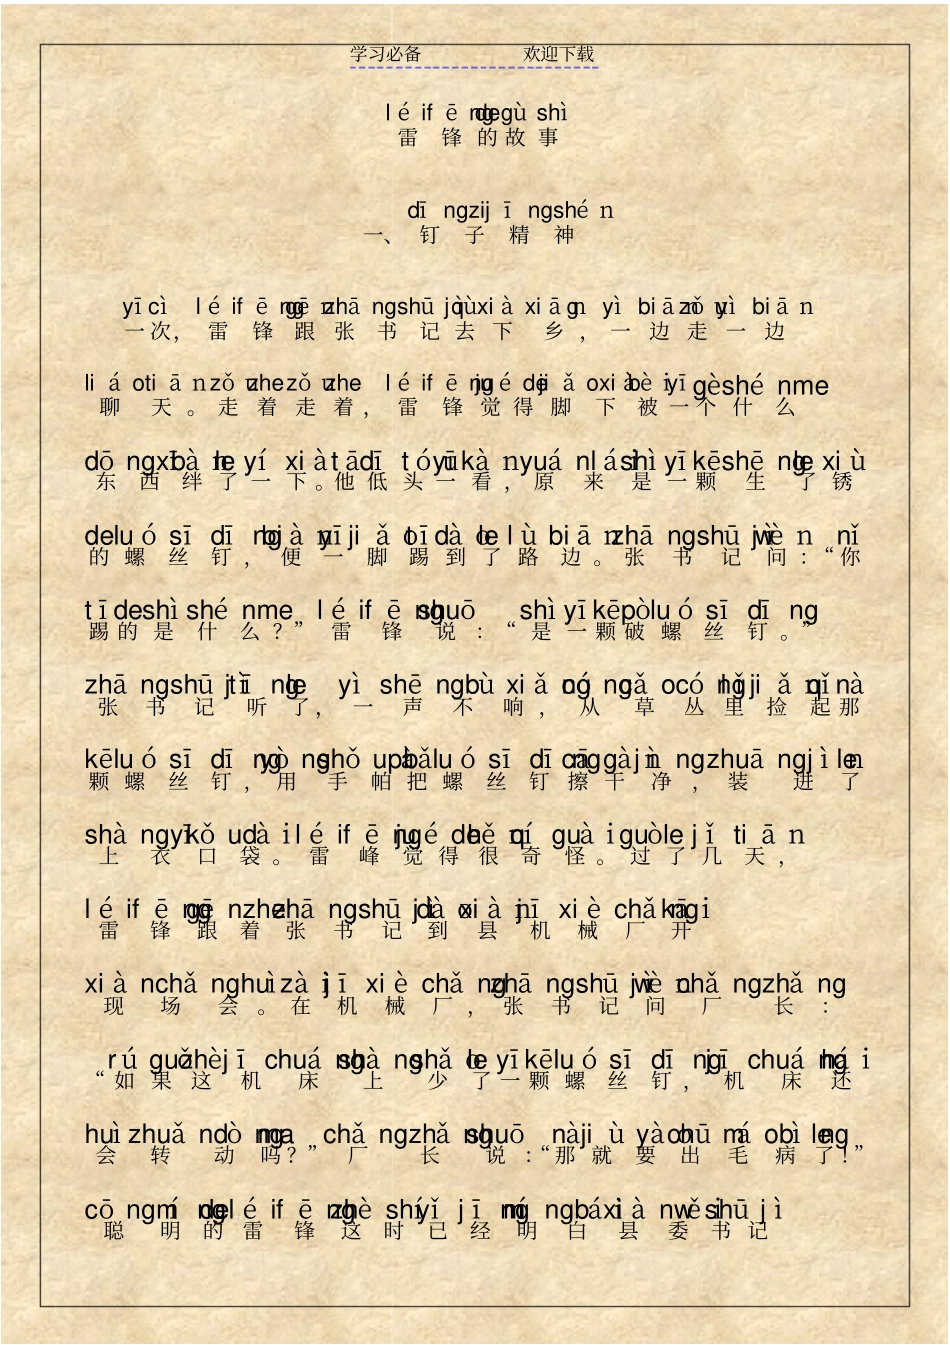 学习必备 欢迎下载
léifēngdegùshì
雷锋的故事
dīngzijīngshén
一、钉子精神
yīcì léifēnggēnzhāngshūjìqùxiàxiāng yìbiānzǒuyìbiān
一次，雷锋跟张书记去下乡，一边走一边
liáotiānzǒuzhezǒuzhe léifēngjuédejiǎoxiàbèiyīgèshénme
聊天。走着走着，雷锋觉得脚下被一个什么
dōngxībànleyíxiàtādītóuyīkànyuánláishìyīkēshēnglexiù
东西绊了一下。他低头一看，原来是一颗生了锈
deluósīdīngbiànyījiǎotīdàolelùbiānzhāngshūjìwènnǐ
的螺丝钉，便一脚踢到了路边。张书记问：“你
tīdeshìshénme léifēngshuō shìyīkēpòluósīdīng
踢的是什么？”雷锋说：“是一颗破螺丝钉。”
zhāngshūjìtīngle yìshēngbùxiǎngcóngcǎocónglǐjiǎnqǐnà
张书记听了，一声不响，从草丛里捡起那
kēluósīdīngyòngshǒupàbǎluósīdīngcāgànjìngzhuāngjìnle
颗螺丝钉，用手帕把螺丝钉擦干净，装进了
shàngyīkǒudàiléifēngjuédehěnqíguàiguòlejǐtiān
上衣口袋。雷峰觉得很奇怪。过了几天，
léifēnggēnzhezhāngshūjìdàoxiànjīxièchǎngkāi
雷锋跟着张书记到县机械厂开
xiànchǎnghuìzàijīxièchǎngzhāngshūjìwènchǎngzhǎng
现场会。在机械厂，张书记问厂长：
rúguǒzhèjīchuángshàngshǎoleyīkēluósīdīngjīchuánghái
“如果这机床上少了一颗螺丝钉，机床还
huìzhuǎndòngma chǎngzhǎngshuō nàjiùyàochūmáobìngle
会转动吗？”厂长说：“那就要出毛病了！”
cōngmíngdeléifēngzhèshíyǐjīngmíngbáixiànwěishūjì
聪明的雷锋这时已经明白县委书记